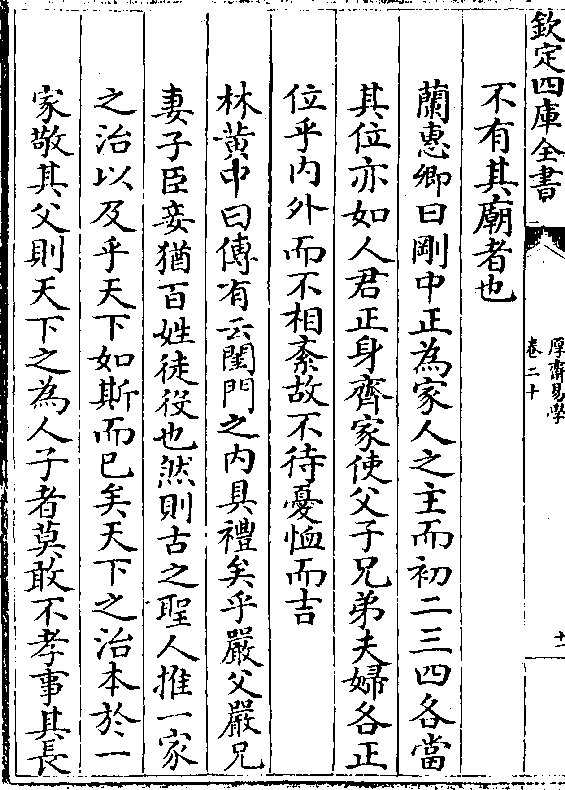 欽定四庫全書
厚齋易學
卷二十
十一
不有其廟者也
蘭惠卿曰剛中正為家人之主而初二三四各當
其位亦如人君正身齊家使父子兄弟夫婦各正
位乎內外而不相紊故不待憂恤而吉
林黃中曰傳有云閨門之內具禮矣乎嚴父嚴兄
妻子臣妾猶百姓徒役也然則古之聖人推一家
之治以及乎天下如斯而已矣天下之治本於一
家敬其父則天下之為人子者莫敢不孝事其長